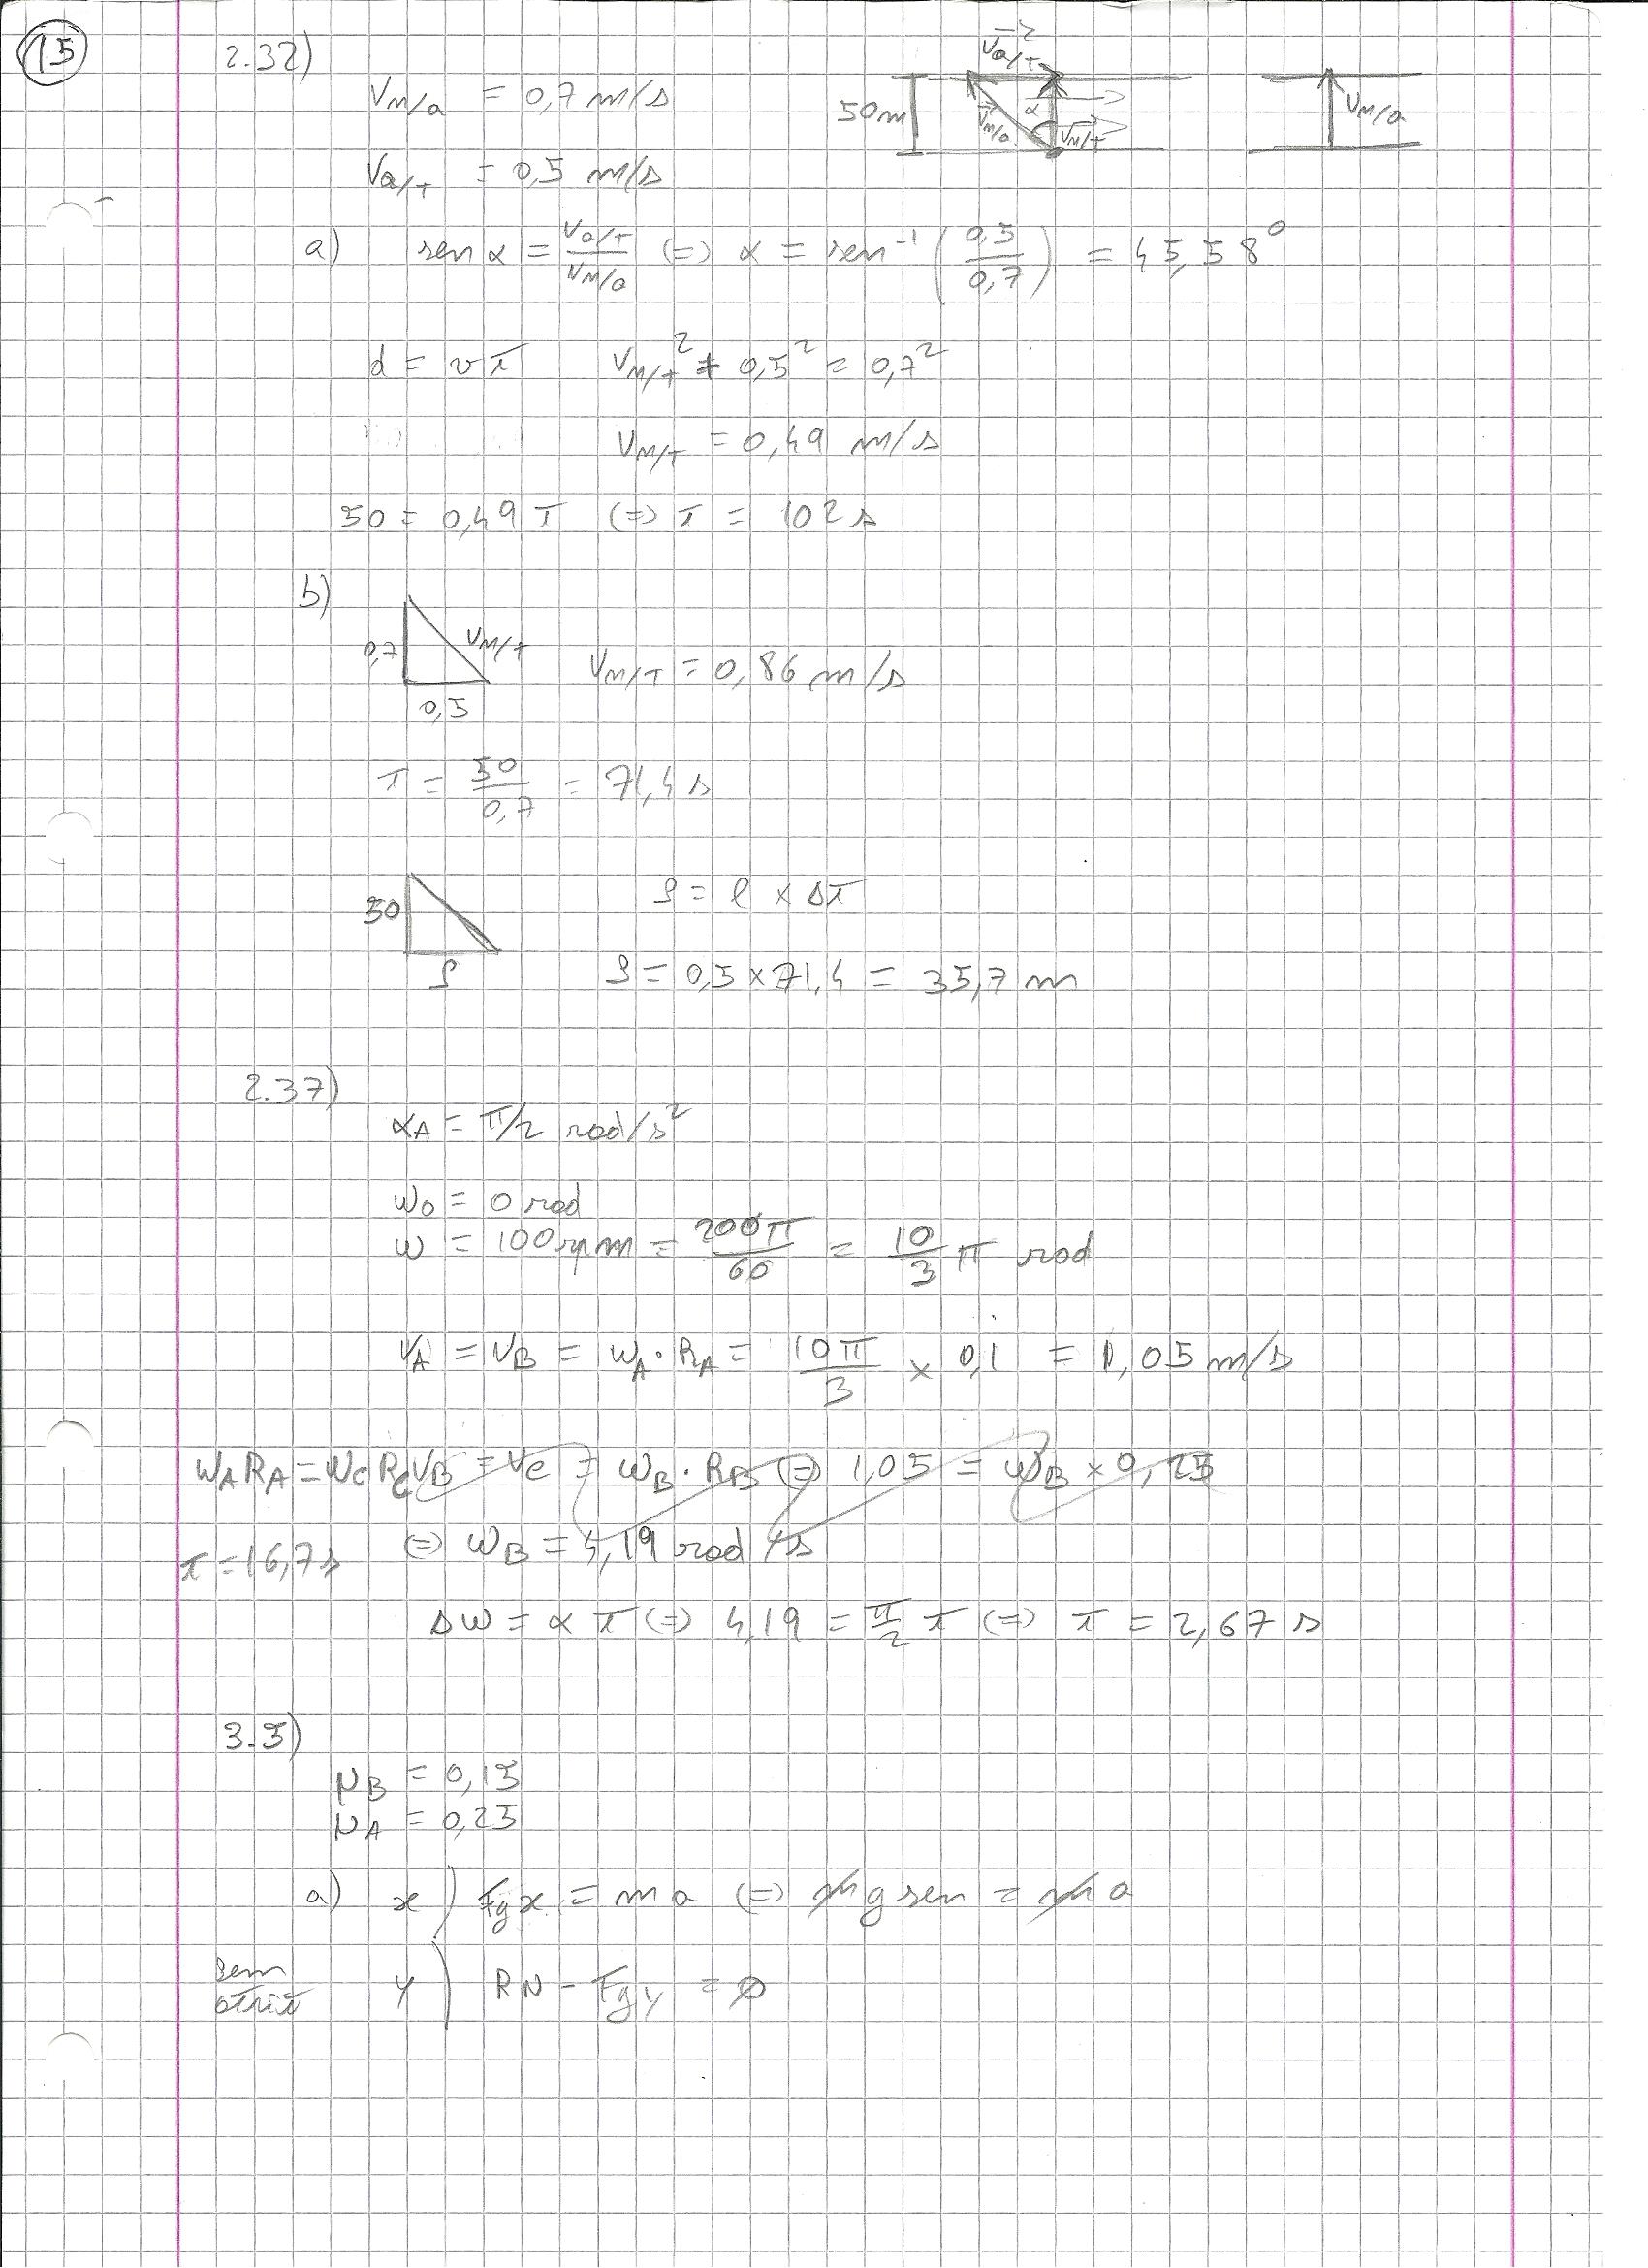 15
2.32)
V_M/a = 0,7 m/s
V_a/T = 0,5 m/s
50m V_a/T V_M/a α V_M/T
V_M/a
a) sen α = V_a/T / V_M/a (=) α = sen⁻¹ (0,5/0,7) = 45,58°
d = v t V_M/T² + 0,5² = 0,7²
V_M/T = 0,49 m/s
50 = 0,49 t (=) t = 102 s
b)
0,7 V_M/T
0,5
V_M/T = 0,86 m/s
t = 50/0,7 = 71,4 s
50
S
S = l × Δt
S = 0,5 × 71,4 = 35,7 m
2.37)
α_A = π/2 rad/s²
w_0 = 0 rad
w = 100 rpm = 200π/60 = 10/3 π rad
V_A = V_B = w_A · R_A = 10π/3 × 0,1 = 1,05 m/s
w_A R_A = w_C R_C V_B = V_C = w_B · R_B (=) 1,05 = w_B × 0,25
t = 16,7 s (=) w_B = 4,19 rad/s
Δw = α t (=) 4,19 = π/2 t (=) t = 2,67 s
3.5)
μ_B = 0,15
μ_A = 0,25
a) x) Fgx = m a (=) m g sen = m a
sem atrit y) RN - Fgy = 0